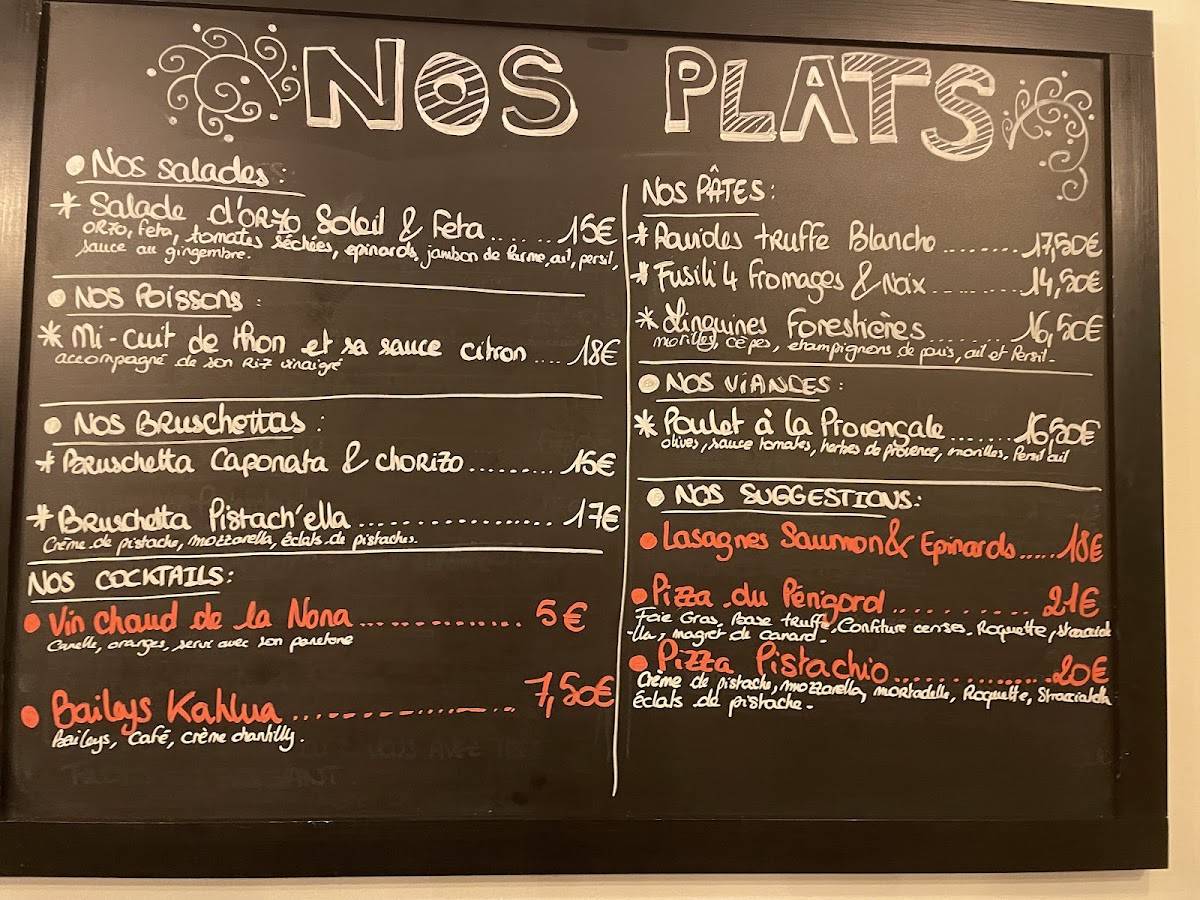 NOS PLATS
Nos salades:
* Salade d'ORZO Soleil & Feta ........ 15€
ORZO, feta, tomates séchées, epinards, jambon de Parme, ail, persil,
sauce au gingembre.
Nos Poissons :
* Mi-cuit de thon et sa sauce citron .... 18€
accompagné de son Riz vinaigré
Nos Bruschettas :
* Bruschetta Caponata & CHORIZO ........... 15€
* Bruschetta Pistach'ella ...................... 17€
Crème de pistache, mozzarella, éclats de pistaches.
NOS COCKTAILS:
Vin chaud de la Nona .................. 5€
Canelle, oranges, servi avec son panetone
Baileys Kahlua ...................... 7,50€
Baileys, Café, crème chantilly.
NOS PÂTES:
* Ravioles truffe Blanche ......... 17,50€
* Fusili 4 fromages & Noix ......... 14,50€
* Linguines Forestières ........... 16,50€
morilles, cèpes, champignons de paris, ail et Persil.
NOS VIANDES :
* Poulet à la Provençale ....... 16,50€
olives, sauce tomates, herbes de provence, morilles, Persil ail
NOS SUGGESTIONS:
Lasagnes Saumon & Epinards ...... 18€
Pizza du Périgord ............ 21€
Foie Gras, Base truffe, Confiture cerises, Roquette, Straciate
-lla, magret de canard.
Pizza Pistachio ................ 20€
Crème de pistache, mozzarella, mortadelle, Roquette, Stracciatella
éclats de pistache.